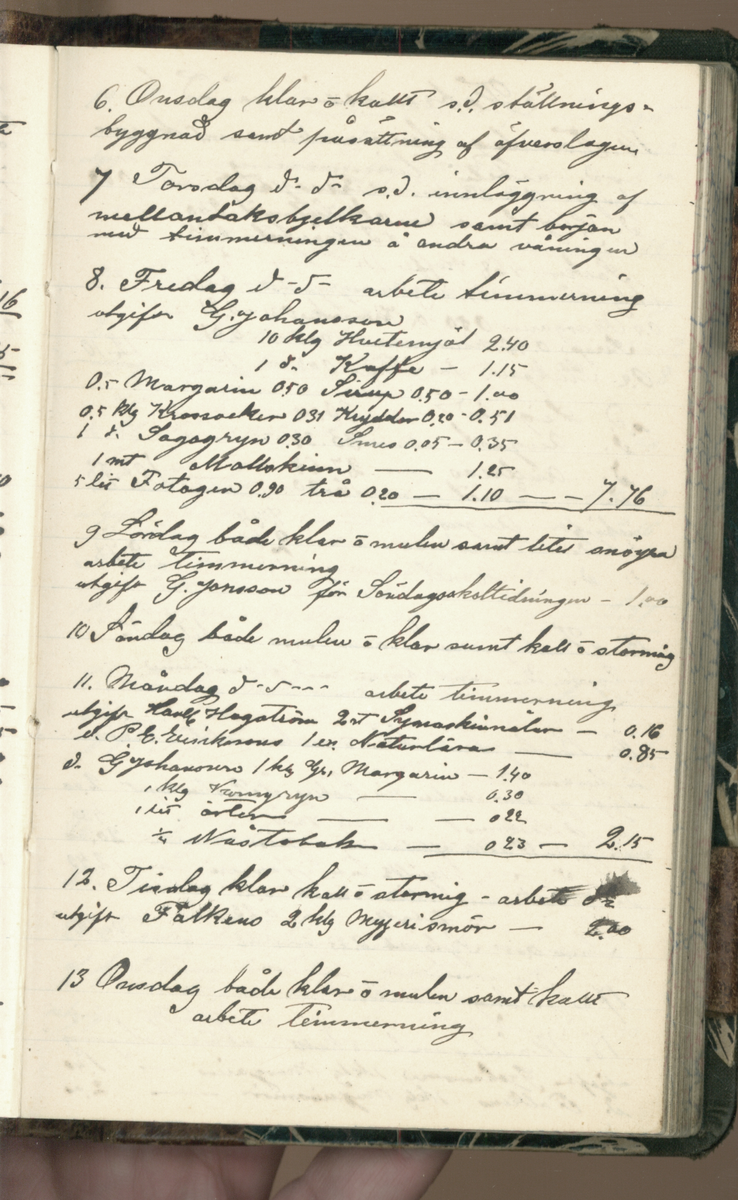 6. Onsdag klar ō kallt s.d. ställnings-
byggnad samt påsättning af öfverslagen
7 Torsdag d- d- s.d. innläggning af
mellantaksbjelkarne samt början
med timmerningen å andra våningen
8. Fredag d-d- arbete timmerning
utgift G. Johansson
10 klg Hvetemjöl 2.40
1 d- Kaffe - 1.15
0.5 Margarin 0.50 Sirup 0.50 - 1.00
0.5 klg Krossocker 0.31 Kryddor 0.20 - 0.51
1 d- Sagogryn 0.30 0.05 - 0.35
1 mt Mollskinn — 1.25
5 lit Fotogen 0.90 trå 0.20 — 1.10 — - 7.76
9 Lördag både klar ō mulen samt litet snöyra
arbete timmerning
utgift G. Jonsson för Söndagsskoltidningen - 1.00
10 Söndag både mulen ō klar samt kall ō stormig
11. Måndag d-d--- arbete timmerning
utgift Hagström 2 st Symaskinnålar - 0.16
d. P. E. Erikssons 1 ex. Naturlära — 0.85
d. G Johansson 1 kg Gr. Margarin - 1.40
1 klg Korngryn — 0.30
1 lit ärter — — 0.22
¼ Nästobak — 0.23 - 2.15
12. Tisdag klar kall ō stormig - arbete d-
utgift Falkens 2 klg Mejerismör — 2.00
13 Onsdag både klar ō mulen samt kallt
arbete timmerning